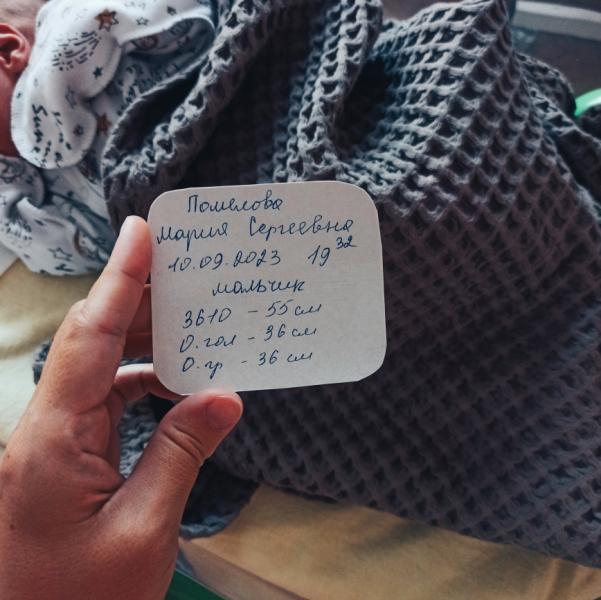 Помелова
Мария Сергеевна
10.09.2023 19 32
мальчик
3610 - 55 см
О. гол - 36 см
О. гр - 36 см